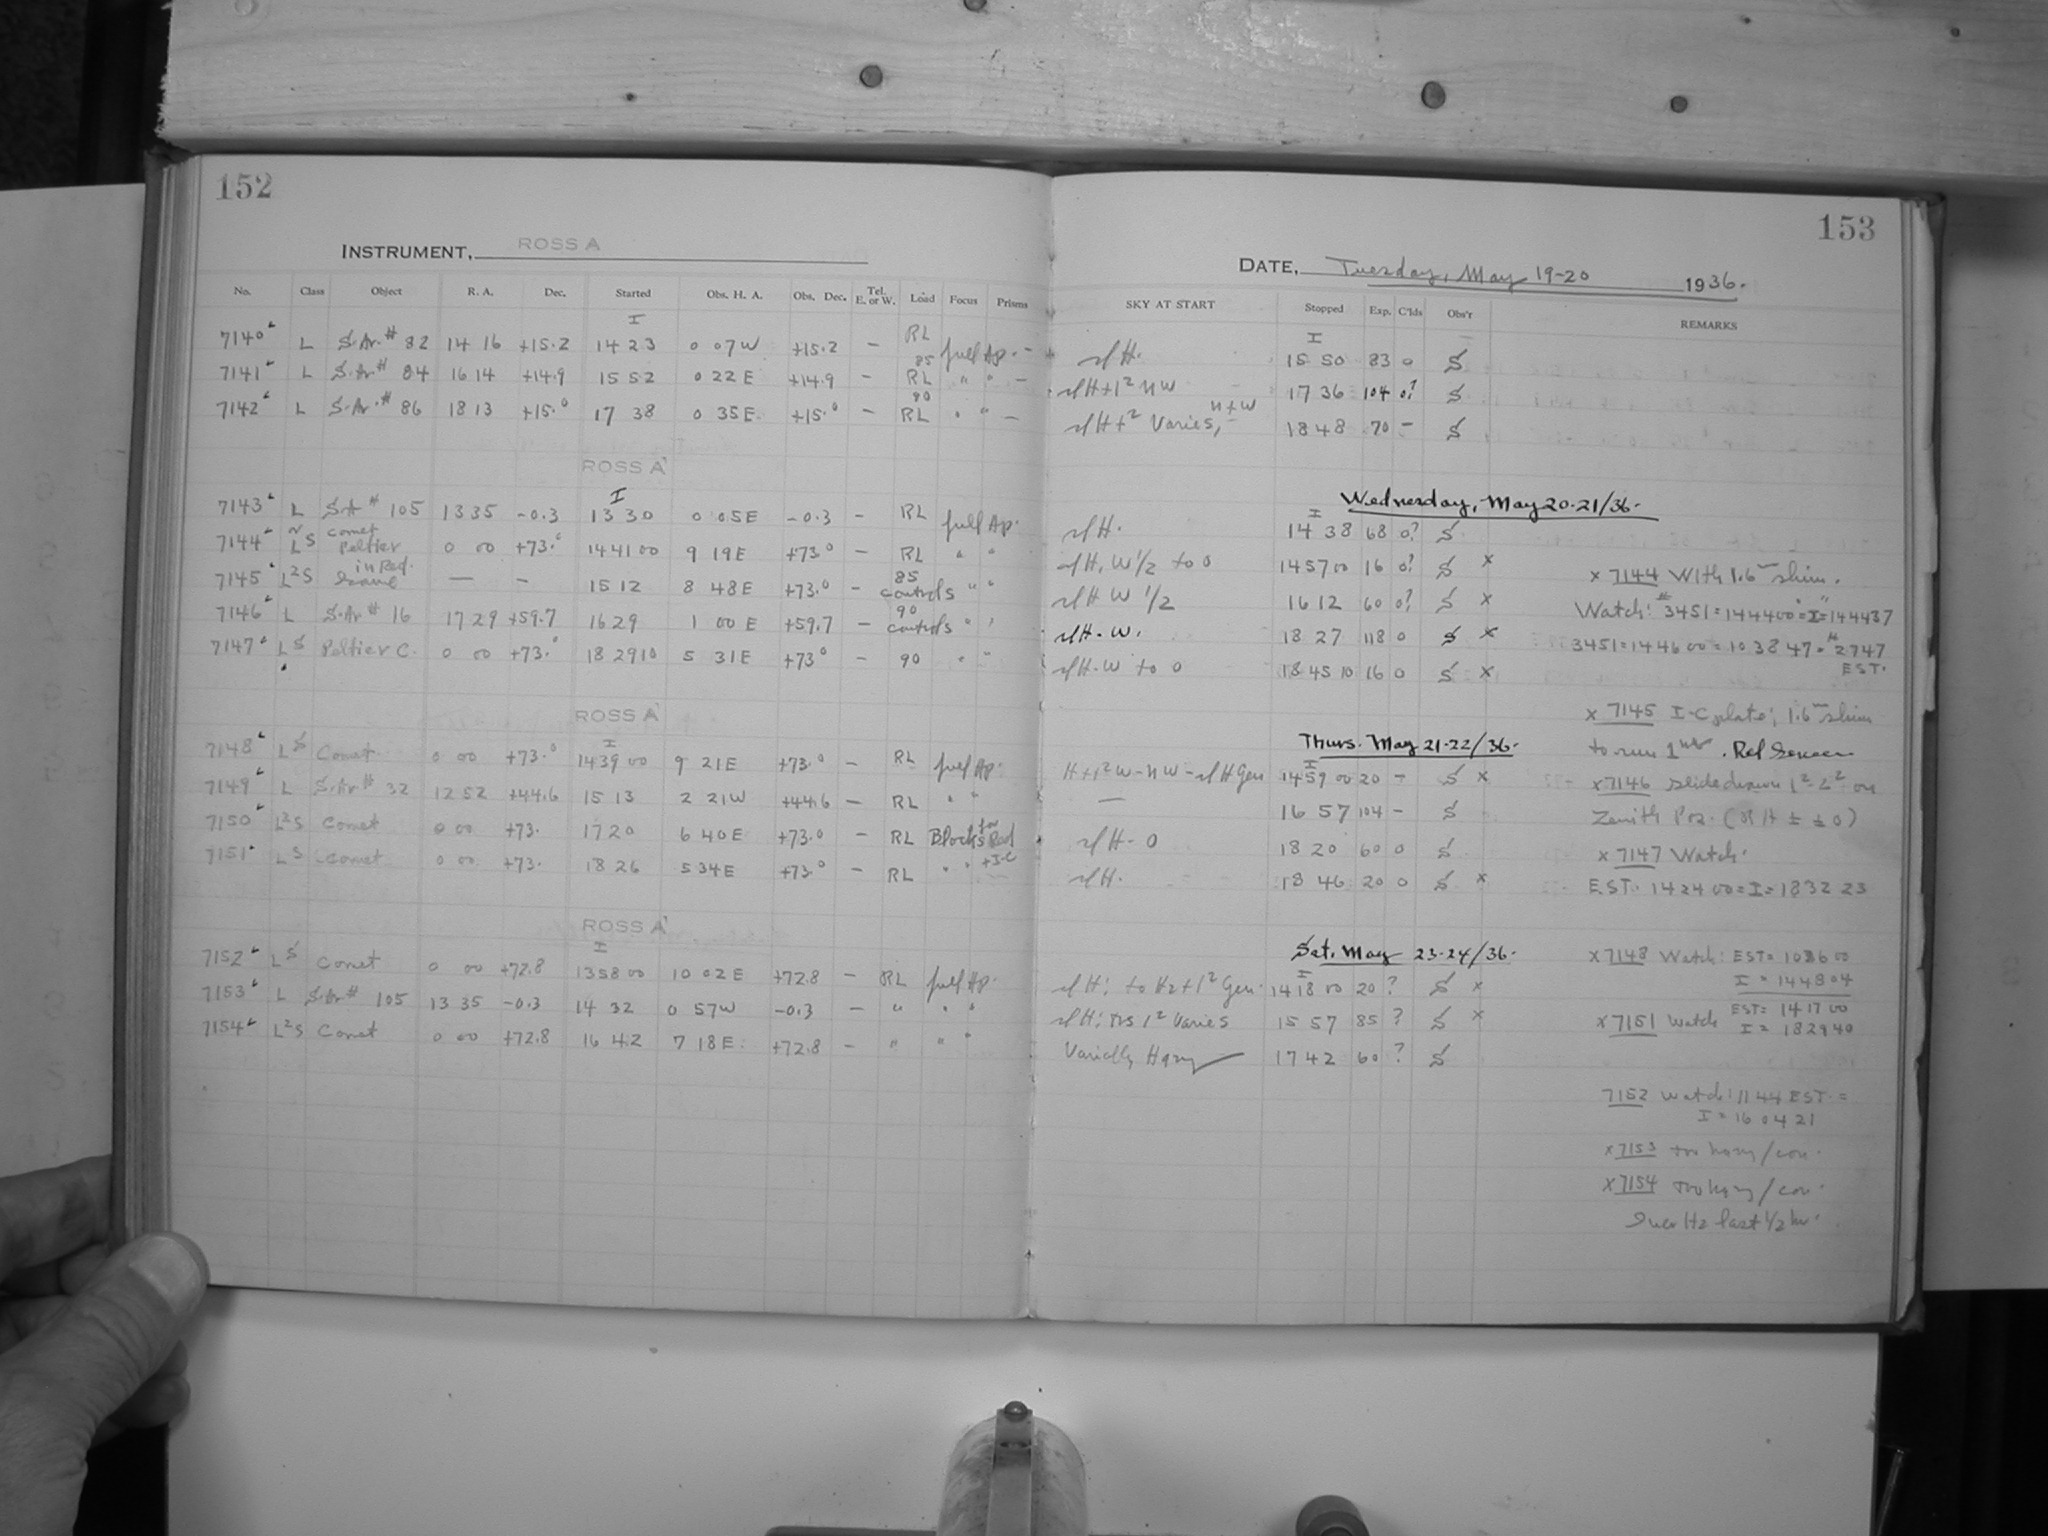 152
INSTRUMENT, ROSS A
No. Class Object R. A. Dec. Started Obs. H. A. Obs. Dec. Tel. E. or W. Load Focus Prisms
I
7140 L S.Ar.# 82 14 16 +15.2 14 23 0 07W +15.2 - RL full Ap. -
85
7141 L S.Ar# 84 16 14 +14.9 15 52 0 22 E +14.9 - RL " " -
90
7142 L S.Ar.# 86 18 13 +15.0 17 38 0 35E +15.0 - RL " " -
ROSS A
I
7143 L S.A# 105 13 35 -0.3 13 30 0 05E -0.3 - RL full Ap.
7144 LS Comet Peltier 0 00 +73.0 14 41 00 9 19E +73.0 - RL " "
in Red.
7145 L2S Same — - 15 12 8 48E +73.0 - 85 controls " "
7146 L S.Ar# 16 17 29 +59.7 16 29 1 00 E +59.7 - 90 controls " "
7147 LS Peltier C. 0 00 +73.0 18 29 10 5 31E +73.0 - 90 " "
ROSS A
I
7148 LS Comet 0 00 +73.0 14 39 00 9 21E +73.0 - RL full Ap.
7149 L S.Ar# 32 12 52 +44.6 15 13 2 21W +44.6 - RL " "
7150 L2S Comet 0 00 +73. 17 20 6 40E +73.0 - RL Blocks for Red
+I-C
7151 LS Comet 0 00 +73. 18 26 5 34E +73.0 - RL " "
ROSS A
I
7152 LS Comet 0 00 +72.8 13 58 00 10 02E +72.8 - RL full Ap.
7153 L S.Ar# 105 13 35 -0.3 14 32 0 57W -0.3 - " " "
7154 L2S Comet 0 00 +72.8 16 42 7 18E +72.8 - " " "
153
DATE, Tuesday, May 19-20 1936.
SKY AT START Stopped Exp. C'lds Obs'r REMARKS
I
sl H. 15 50 83 0 S
sl H+1² NW 17 36 104 0? S
sl H+² Varies, N+W 18 48 70 - S
Wednesday, May 20-21/36.
I
sl H. 14 38 68 0? S
sl H, W½ to 0 14 57 00 16 0? S x
sl H W ½ 16 12 60 0? S x
sl H. W. 18 27 118 0 S x
sl H. W to 0 18 45 10 16 0 S x
Thurs. May 21-22/36.
I
H+1²W-NW-sl H Gen 14 59 00 20 - S x
— 16 57 104 - S
sl H. 0 18 20 60 0 S
sl H. 18 46 20 0 S x
Sat. May 23-24/36.
I
sl H: to Hz+1² Gen. 14 18 00 20 ? S x
sl H: 1² Varies 15 57 85 ? S x
Variably Hazy 17 42 60 ? S
x 7144 With 1.6 shim.
Watch: #3451 = 14 44 00 = I = 14 44 37
3451 = 14 46 00 = 10 38 47 = #2747
EST.
x 7145 I-C plate; 1.6 shim
to run 1st. Red Screen
x 7146 slide drawn 1²-2² on
Zenith Pos.
x 7147 Watch.
EST. 14 24 00 = I = 18 32 23
x 7148 Watch: EST = 10 36 00
I = 14 48 04
x 7151 Watch EST = 14 17 00
I = 18 29 40
7152 Watch: 11 44 EST. =
I = 16 04 21
x 7153 too hazy/con.
x 7154 Too hazy/con.
Hz last ½ hr.